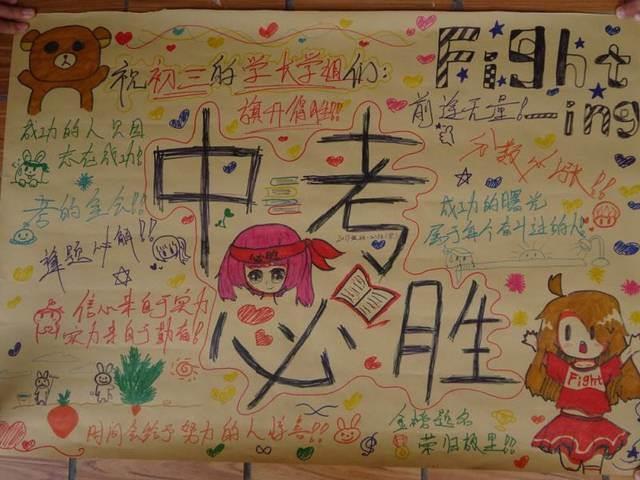 祝初三的学长学姐们:
Fight
ing
旗开得胜!!
前途无量!
成功的人只因
态在成功!
分数必涨!!
中考
必胜
考的全会!!
算题必解!!
成功的曙光
属于每个奋斗过的人
必胜
信心来自于实力
实力来自于勤奋!
Fight
时间会给予努力的人惊喜!!
金榜题名
荣归故里!!